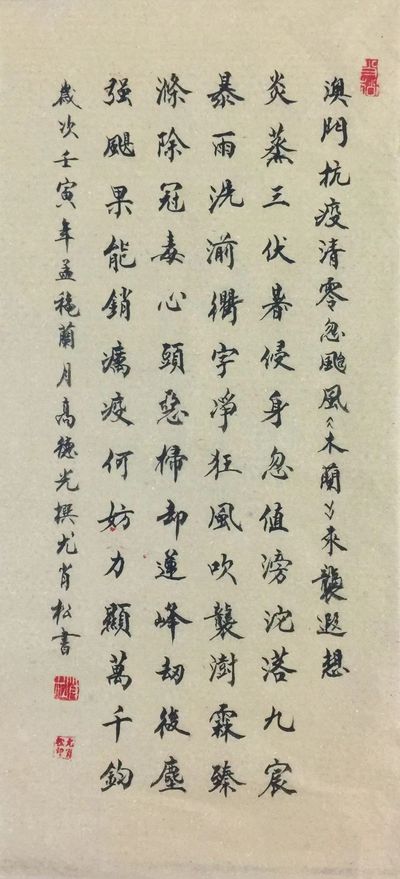 澳門抗疫清零忽颱風《木蘭》來襲遐想
炎蒸三伏暑侵身忽值滂沱落九宸
暴雨洗湔衢宇淨狂風吹襲澍霖臻
滌除冠毒心頭惡掃却蓮峰劫後塵
强颶果能銷癘疫何妨力顯萬千鈞
歲次壬寅年孟穐蘭月高德光撰尤肖松書
尤肖松印